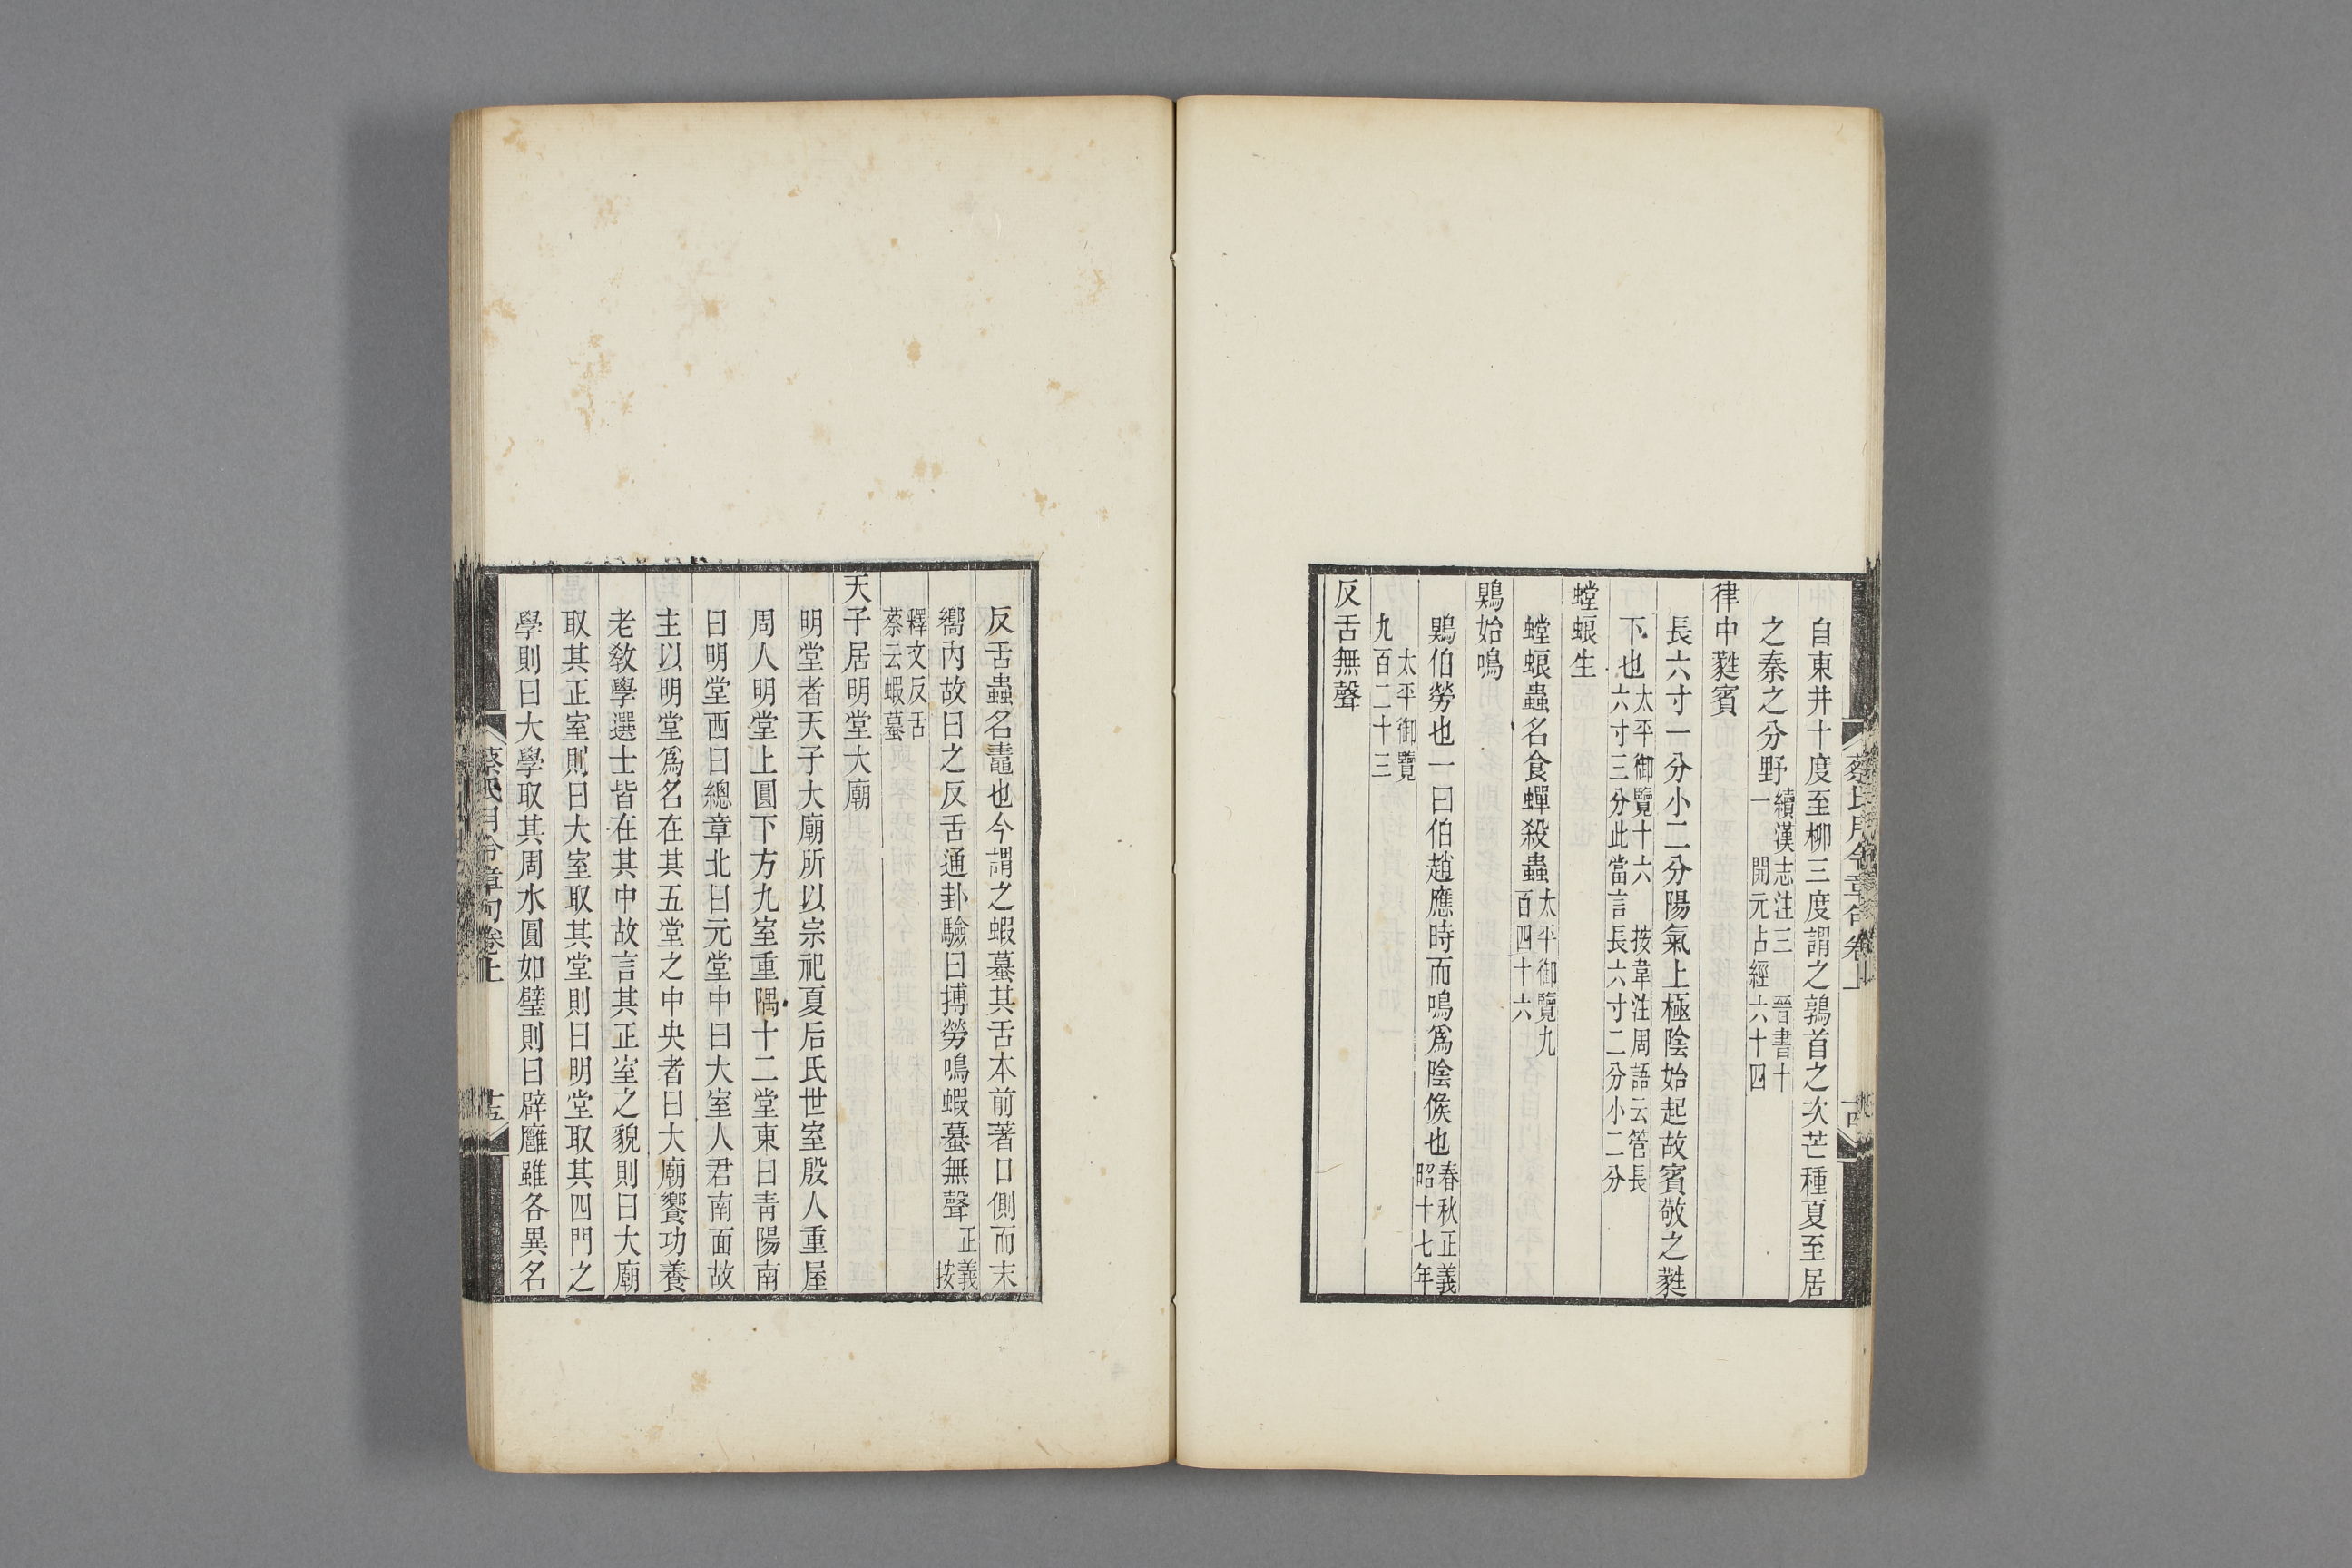 自東井十度至柳三度謂之鶉首之次芒種夏至居
之秦之分野續漢志注三　晉書十
一　開元占經六十四
律中蕤賓
長六寸一分小二分陽氣上極陰始起故賓敬之蕤
下也太平御覽十六　按韋注周語云管長
六寸三分此當言長六寸二分小二分
螳蜋生
螳蜋蟲名食蟬殺蟲太平御覽九
百四十六
鶪始鳴
鶪伯勞也一曰伯趙應時而鳴爲陰候也春秋正義
昭十七年
太平御覽
九百二十三
反舌無聲
反舌蟲名鼃也今謂之蝦蟇其舌本前著口側而末
嚮內故曰之反舌通卦驗曰搏勞鳴蝦蟇無聲正義
按
釋文反舌
蔡云蝦蟇
天子居明堂大廟
明堂者天子大廟所以崇祀夏后氏世室殷人重屋
周人明堂上圓下方九室重隅十二堂東曰青陽南
曰明堂西曰總章北曰元堂中曰大室人君南面故
主以明堂爲名在其五堂之中央者曰大廟饗功養
老敎學選士皆在其中故言其正室之貌則曰大廟
取其正室則曰大室取其堂則曰明堂取其四門之
學則曰大學取其周水圓如璧則曰辟廱雖各異名
蔡氏月令章句卷上